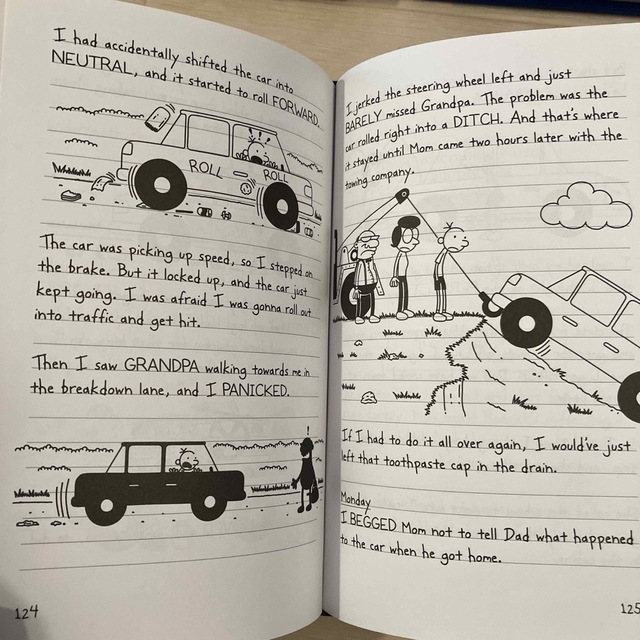 I had accidentally shifted the car into
NEUTRAL, and it started to roll FORWARD.
ROLL
ROLL
The car was picking up speed, so I stepped on
the brake. But it locked up, and the car just
kept going. I was afraid I was gonna roll out
into traffic and get hit.
Then I saw GRANDPA walking towards me in
the breakdown lane, and I PANICKED.
!
124
I jerked the steering wheel left and just
BARELY missed Grandpa. The problem was the
car rolled right into a DITCH. And that's where
it stayed until Mom came two hours later with the
towing company.
If I had to do it all over again, I would've just
left that toothpaste cap in the drain.
Monday
I BEGGED Mom not to tell Dad what happened
to the car when he got home.
125